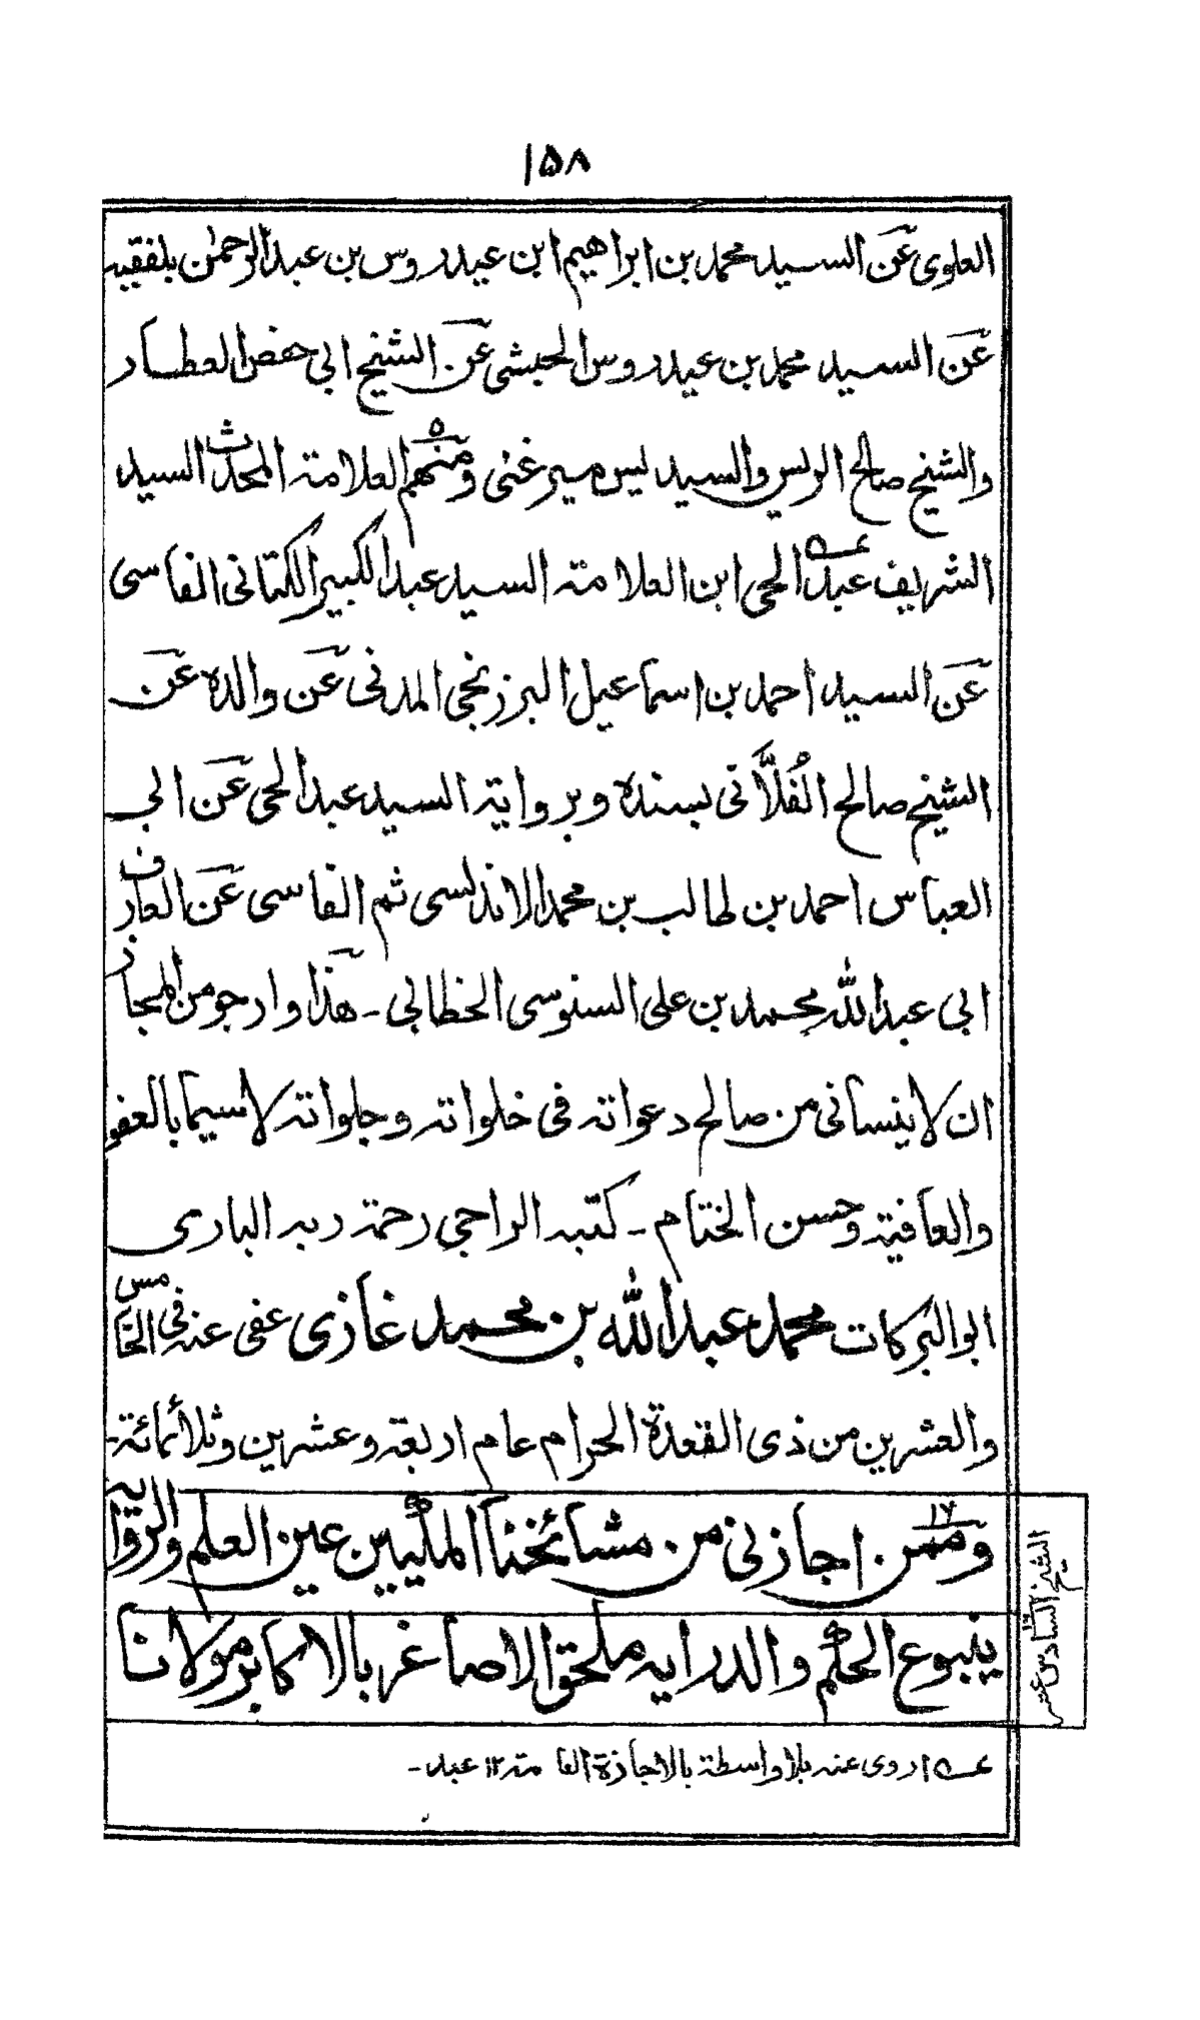 ١٥٨
العلوى عن السيد محمد بن ابراهيم ابن عيدروس بن عبد الرحمٰن بلفقيه
عن السيد محمد بن عيدروس الحبشى عن الشيخ ابى حفص العطار
والشيخ صالح الريس والسيد يس ميرغنى ومنهم العلامة المحدث السيد
الشريف عبد الحى ابن العلامة السيد عبد الكبير الكتانى الفاسى
عن السيد احمد بن اسماعيل البرزنجى المدنى عن والده عن
الشيخ صالح الفُلَّانى بسنده وبرواية السيد عبد الحى عن ابى
العباس احمد بن طالب بن محمد الاندلسى ثم الفاسى عن العارف
ابى عبد الله محمد بن على السنوسى الخطابى ۔ هذا وارجو من المجاز
ان لا ينسانى من صالح دعواته فى خلواته وجلواته لاسيما بالعفو
والعافية وحسن الختام ۔ كتبه الراجى رحمة ربه البارى
ابو البركات محمد عبد الله بن محمد غازى عفى عنه فى الخامس
والعشرين من ذى القعدة الحرام عام اربعة وعشرين وثلاثمائة۔
١٦
وممن اجازنى من مشائخنا المكيين عين العلم والرواية
ينبوع الحلم والدراية ملحق الاصاغر بالاكابر مولانا
الشيخ السادس عشر
١٦
عــه اروى عنه بلا واسطة بالاجازة العامة ١٢ عبد۔